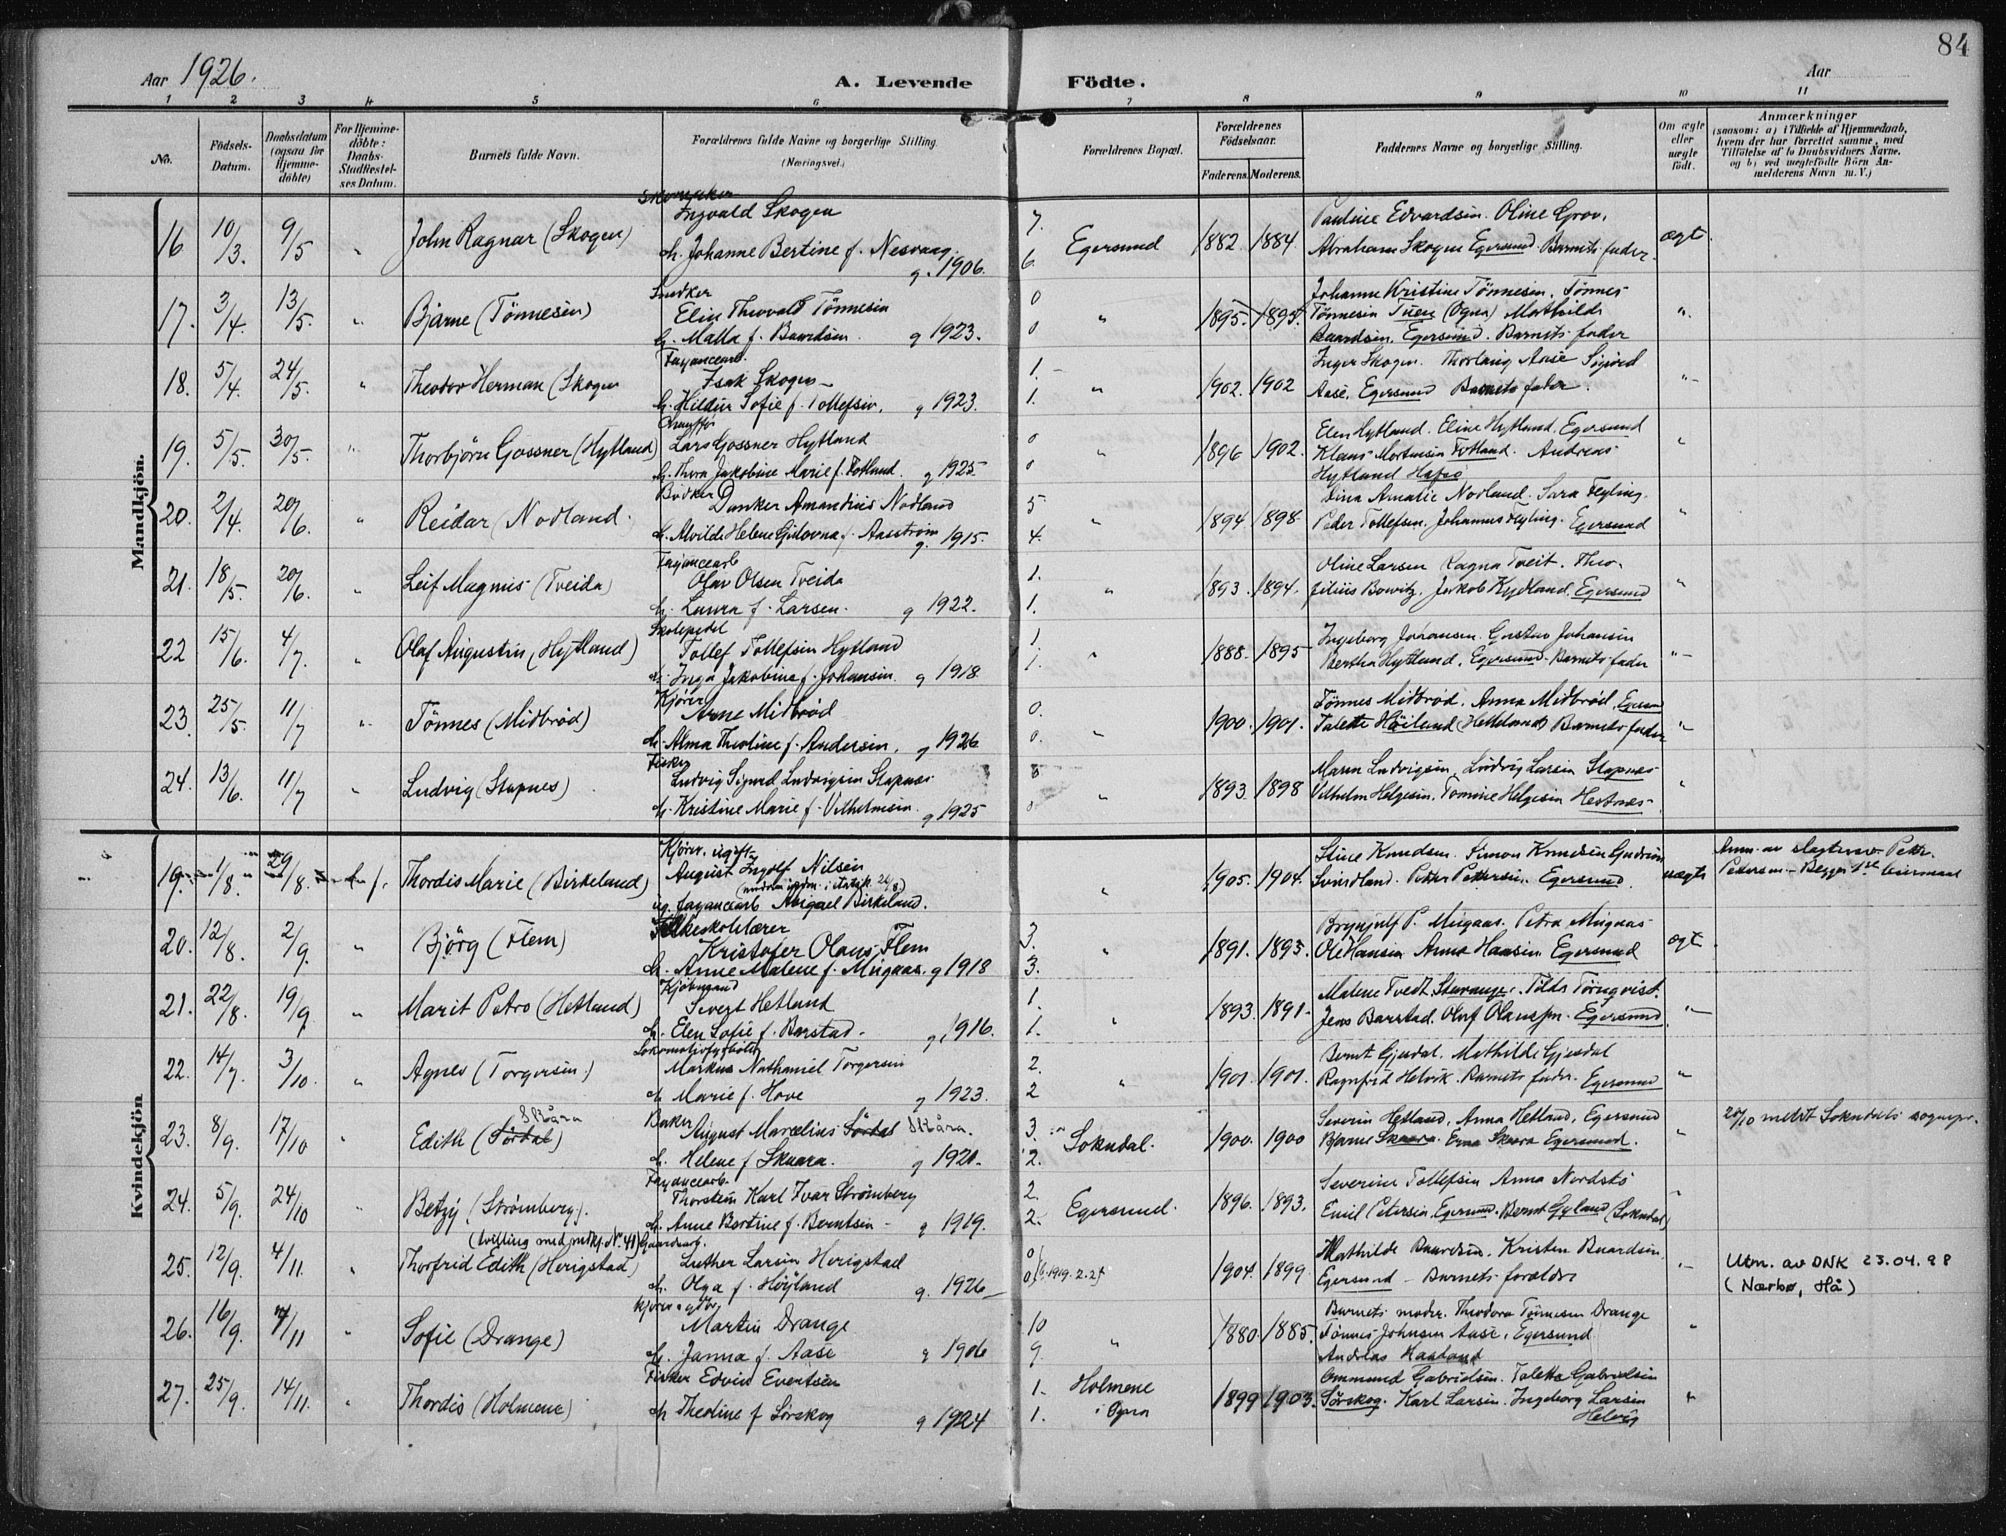 84
Aar 1926.
A. Levende Födte.
Aar
1 2 3 4 5 6 7 8 9 10 11
No.
Födsels-Datum.
Daabsdatum (ogsaa for Hjemme-döbte)
For Hjemme-döbte: Daabs-Stadfestel-ses Datum.
Barnets fulde Navn.
Forældrenes fulde Navne og borgerlige Stilling. (Næringsvei.)
Forældrenes Bopæl.
Forældrenes Födselsaar.
Faderens. Moderens.
Faddernes Navne og borgerlige Stilling.
Om ægte eller uægte födt.
Anmærkninger
(saasom: a) i Tilfælde af Hjemmedaab, hvem der har forrettet samme, med Tilföielse af to Daabsvidners Navne, og b) ved uegtefödte Börn An-melderens Navn m. V.)
Mandkjön.
16 10/3. 9/5 " John Ragnar (Skogen) Skomaker Ingvald Skogen
h. Johanne Bertine f. Nesvaag. g. 1906. 7. 6. Egersund 1882. 1884. Pauline Edvardsen. Oline Grov.
Abraham Skogen Egersund. Barnets fader. ægte
17. 3/4. 13/5. " Bjarne (Tönnesen) Snedker Elin Thorvald Tönnesen
h. Malla f. Baardsen. g 1923. 0 0 " 1895. 1895. Johanne Kristine Tönnesen. Tönnes
Tönnesen Tuen (Ogna) Mathilde
Baardsen. Egersund. Barnets fader "
18. 5/4. 24/5. " Theodor Herman (Skogen Fayancearb. Isak Skogen
h. Hildur Sofie f. Tollefsen. g 1923. 1. 1. " 1902. 1902 Inger Skogen. Thorlaug Aase Sigurd
Aase. Egersund Barnets fader. "
19. 5/5. 30/5. " Thorbjörn Gossner (Hytland) Chauffør Lars Gossner Hytland
h. Thora Jakobine Marie f. Fotland. g 1925 0 0 " 1896 1902. Elen Hytland. Eline Hytland. Egersund
Klaus Mortensen Fotland. Andreas
Hytland "
20. 2/4. 20/6. " Reidar (Nodland. Bödker Danker Amandius Nodland
h. Alvilde Helene f. Aasström g. 1915. 5 4. " 1894. 1898. Dina Amalie Nodland. Sara Feyling.
Peder Tollefsen. Johannes Feyling. Egersund "
21. 18/5. 20/6. " Leif Magnus (Tveida) Fayancearb Olav Olsen Tveida
h. Laura f. Larsen. g 1922. 1. 1. " 1893 1894. Oline Larsen Ragna Tveit. Theo-
filius Bowitz. Jakob Kydland. Egersund "
22 15/6. 4/7. " Olaf Augustin (Hytland) Skolepedel Tollef Tollefsen Hytland
h. Inga Jakobine f. Johansen. g 1918. 1. 1. " 1888. 1895 Ingeborg Johansen. Gustav Johansen
Bertha Hytland. Egersund. Barnets fader "
23. 25/5. 11/7 " Tönnes (Midbrød) Kjörer Arne Midbrød
h. Alma Theoline f. Andersen. g 1926 0. 0. " 1900. 1901. Tönnes Midbrød. Anna Midbrød. Egersund
Talette Höiland (Hetland) Barnets fader "
24. 13/6. 11/7 " Ludvig (Stapnes) Fisker Ludvig Sigurd Ludvigsen Stapnes
h. Kristine Marie f. Vilhelmsen. g 1925 " 1893 1898 Maren Ludvigsen. Ludvig Larsen Stapnes
Vilhelm Helgesen. Tomine Helgesen Hestnes "
Kvindekjön
19. 1/8. 29/8. h. f. Thordis Marie (Birkeland) Kjörer. ugift August Ingolf Nilsen
ug. fayancearb Abigael Birkeland. " 1905. 1904. Stine Knudsen. Simon Knudsen Gudrun
Svindland. Peder Pettersen. Egersund. uægte
20. 12/8. 2/9. " Bjørg (Flem) Folkeskolelærer Kristofer Olaus Flem
h. Anne Malene f. Mugaas. g 1918 3. 3. " 1891. 1893. Brynjulf P. Mugaas. Petra Mugaas
Ole Hansen Anna Hansen. Egersund ægt
21. 22/8. 19/9. " Marit Petra (Hetland) Kjöbmand Sivert Hetland
h. Elen Sofie f. Barstad. g. 1916. 1. 1. " 1893. 1891. Malene Tvedt. Stavanger. Tilda Törnqvist.
Jens Barstad. Olaf Olaussen. Egersund. "
22. 14/7. 3/10. " Agnes (Torgersen.) Lokomotivfyrböter Markus Nathaniel Torgersen
h. Marie f. Hove g 1923. 2. 2 " 1901. 1901. Bernt Gjesdal. Mathilde Gjesdal
Ragnfrid Helvik. Barnets fader. Egersund "
23. 8/9. 17/10 " Edith (Sørdal) Skåra Baker August Marcelius Sørdal Skåra.
h. Helene f Skaara. g 1921. 3. 2. Sokndal. 1900. 1900 Severin Hetland. Anna Hetland. Egersund
Bjarne Skaara. Erna Skaara Egersund. " 20/10 meldt Sokndals sognepr.
24. 5/9. 24/10 Betzy (Strömberg). Fayancearb. Thorstein Karl Ivar Strömberg
h. Anne Bertine f. Berntsen g 1919. 2. 2. Egersund. 1896. 1893. Severine Tollefsen Anna Nordstö
Emil Petersen. Egersund. Bernt Gyland (Sokndal) "
25. 12/9. 4/11. (tvilling med mdkj. No. 41) Thorfrid Edith (Herigstad) Gaardsarb. Luther Larsen Herigstad
h. Olga f. Höyland g. 1926 0 0 1904. 1899 Mathilde Baardsen. Kristen Baardsen.
Egersund — Barnets forældre " Utm. av DNK 23.04.98
(Nærbø, Hå)
26. 16/9. 7/11 " Sofie (Drange) Martin Drange
h. Janna f. Aase g 1906 10 9. " 1880. 1885. Barnets moder. Theodora Tönnesen Drange
Tönnes Johnsen Aase. Egersund
Andreas Haaland "
27. 25/9. 14/11. " Thordis (Holmene) Fisker Edvin Evertsen
h Theoline f Sørskog g 1924 1. 1. Holmene i Ogna 1899 1903. Ommund Gabrielsen. Talette Gabrielsen
Sørskog. Karl Larsen. Ingeborg Larsen
Helvig "